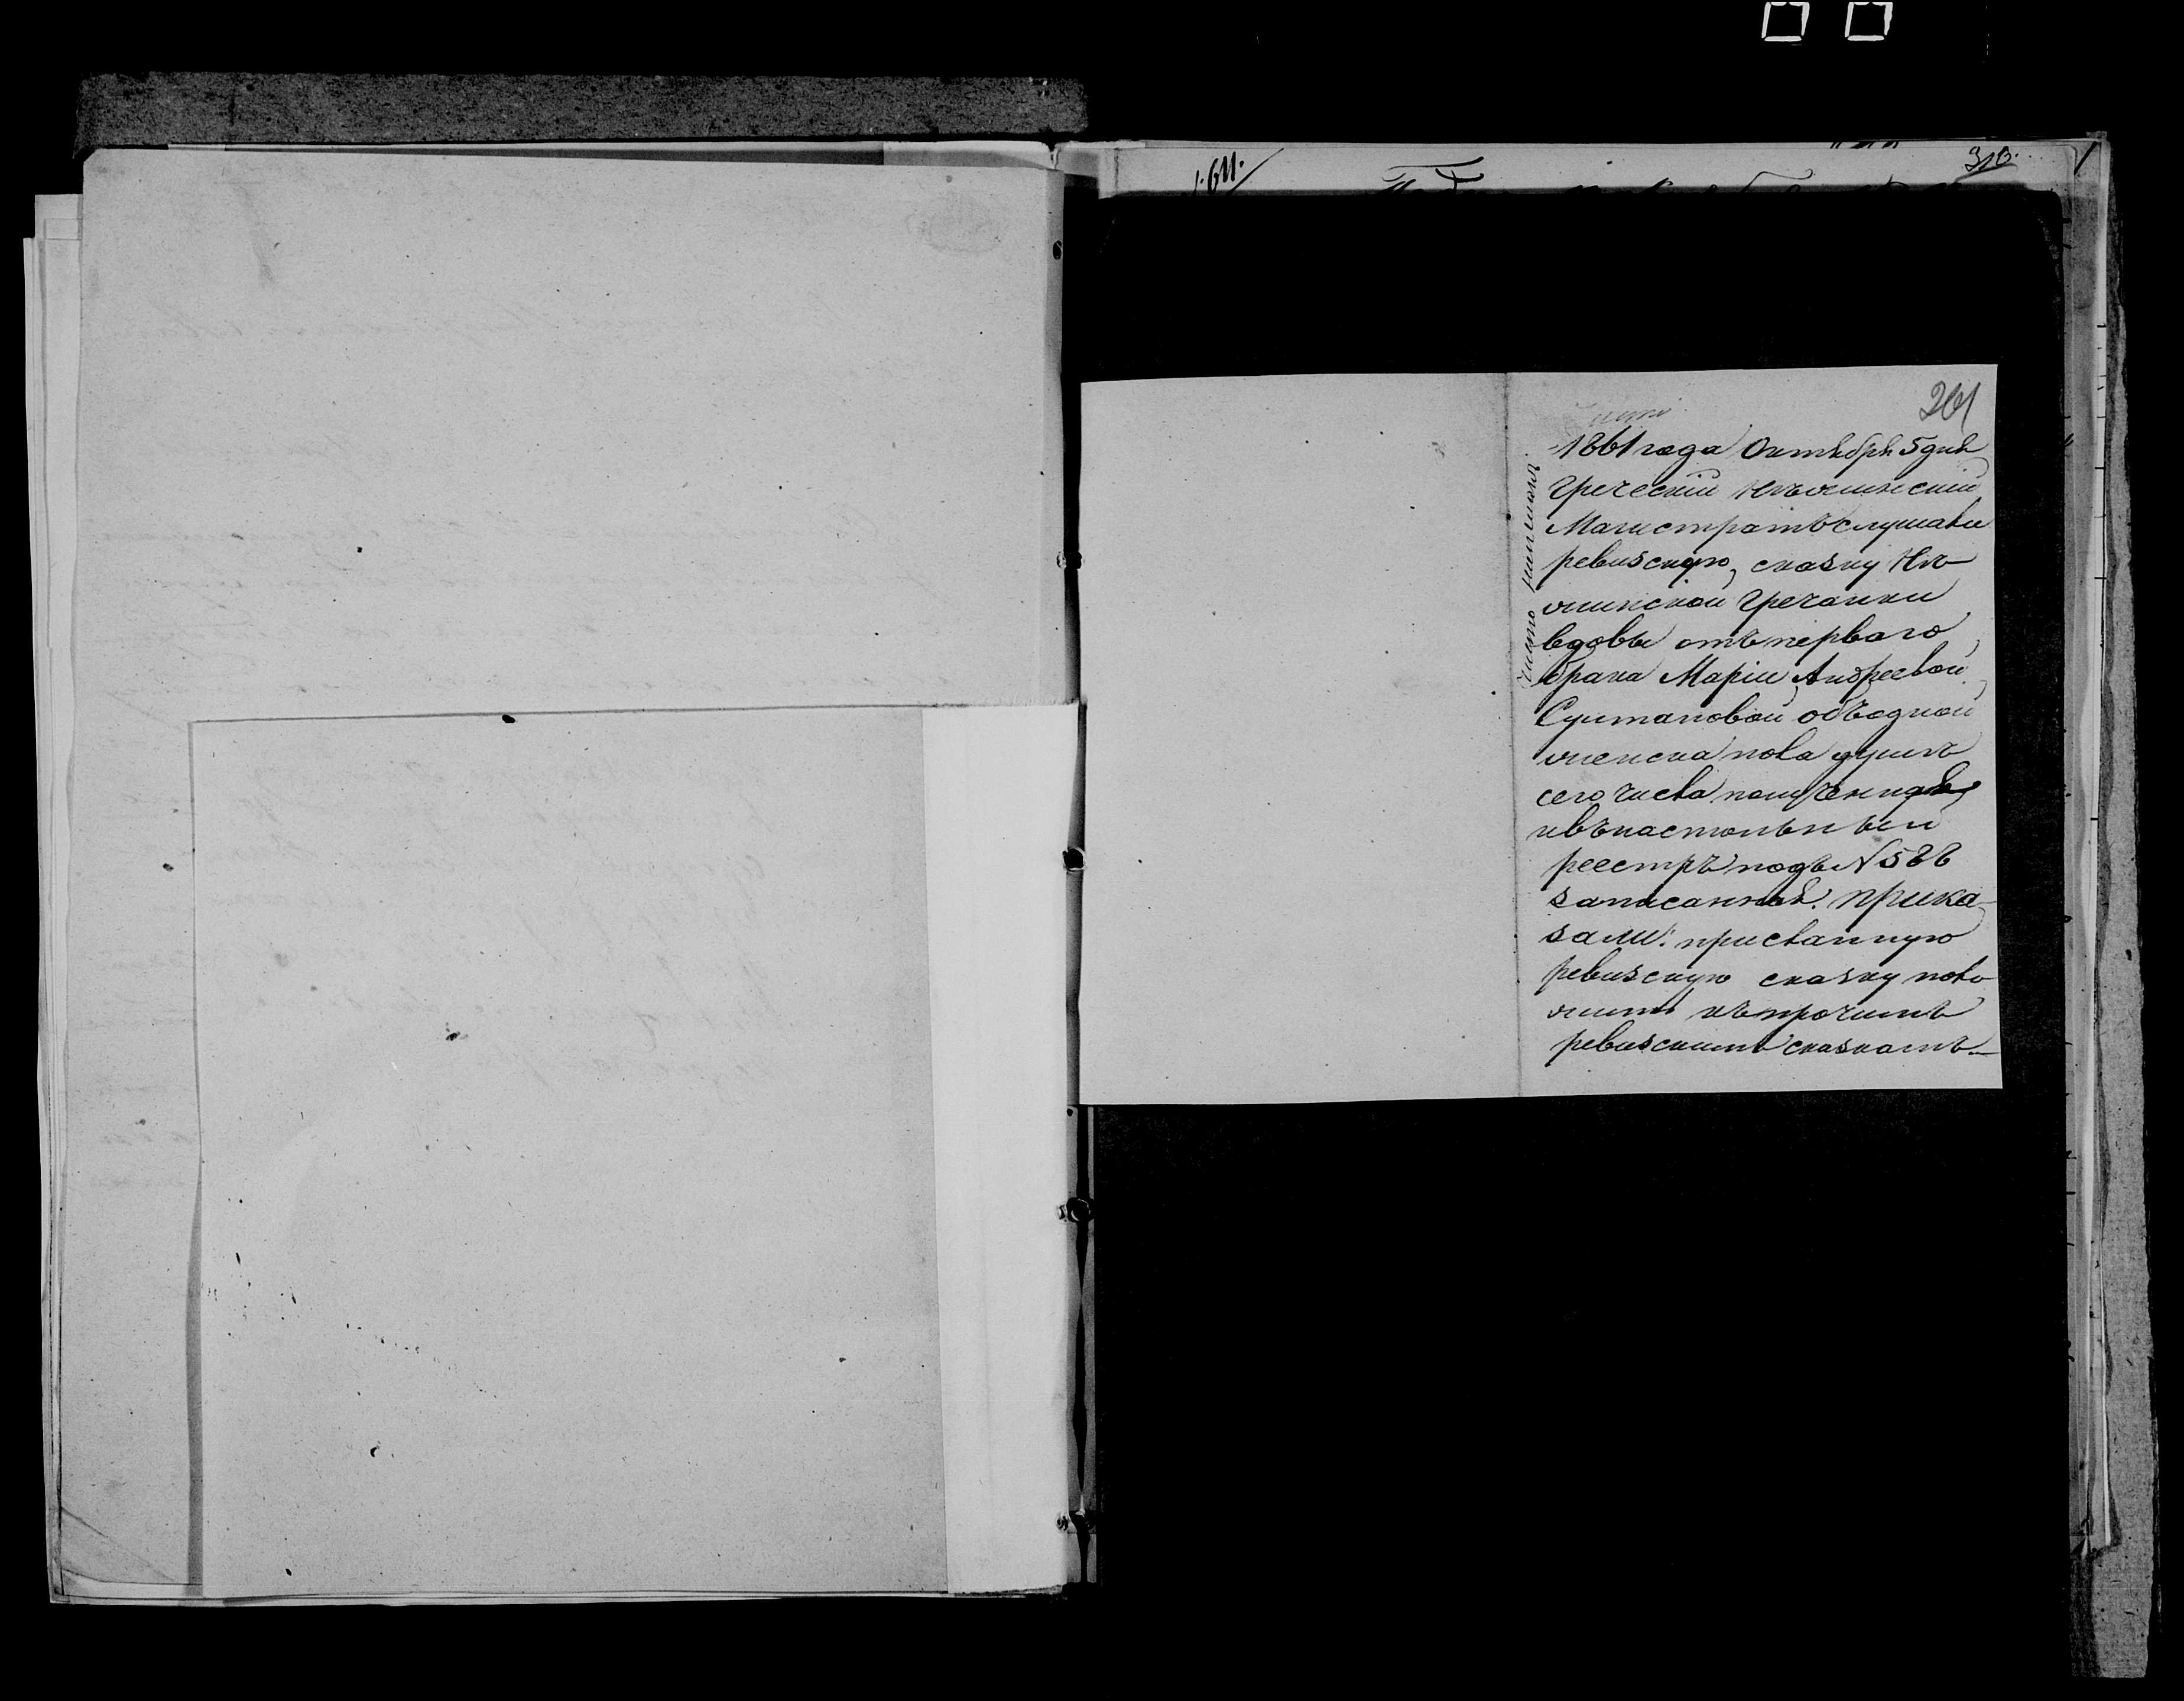 310.
261
1861 года Октября 5 дня
Греческій Нѣжинскій
Магистратъ слушали
ревизскую, сказку Нѣ
жинской Гречанки
вдовы отъ перваго
брака Маріи Андреевой
Султановой объ одной
женска пола душѣ
сего числа полученную
и въ настольный
реестръ подъ № 588
записанная. Прика-
зали: присланную
ревизскую сказку поло
жить къ прочимъ
ревизскимъ сказкамъ.